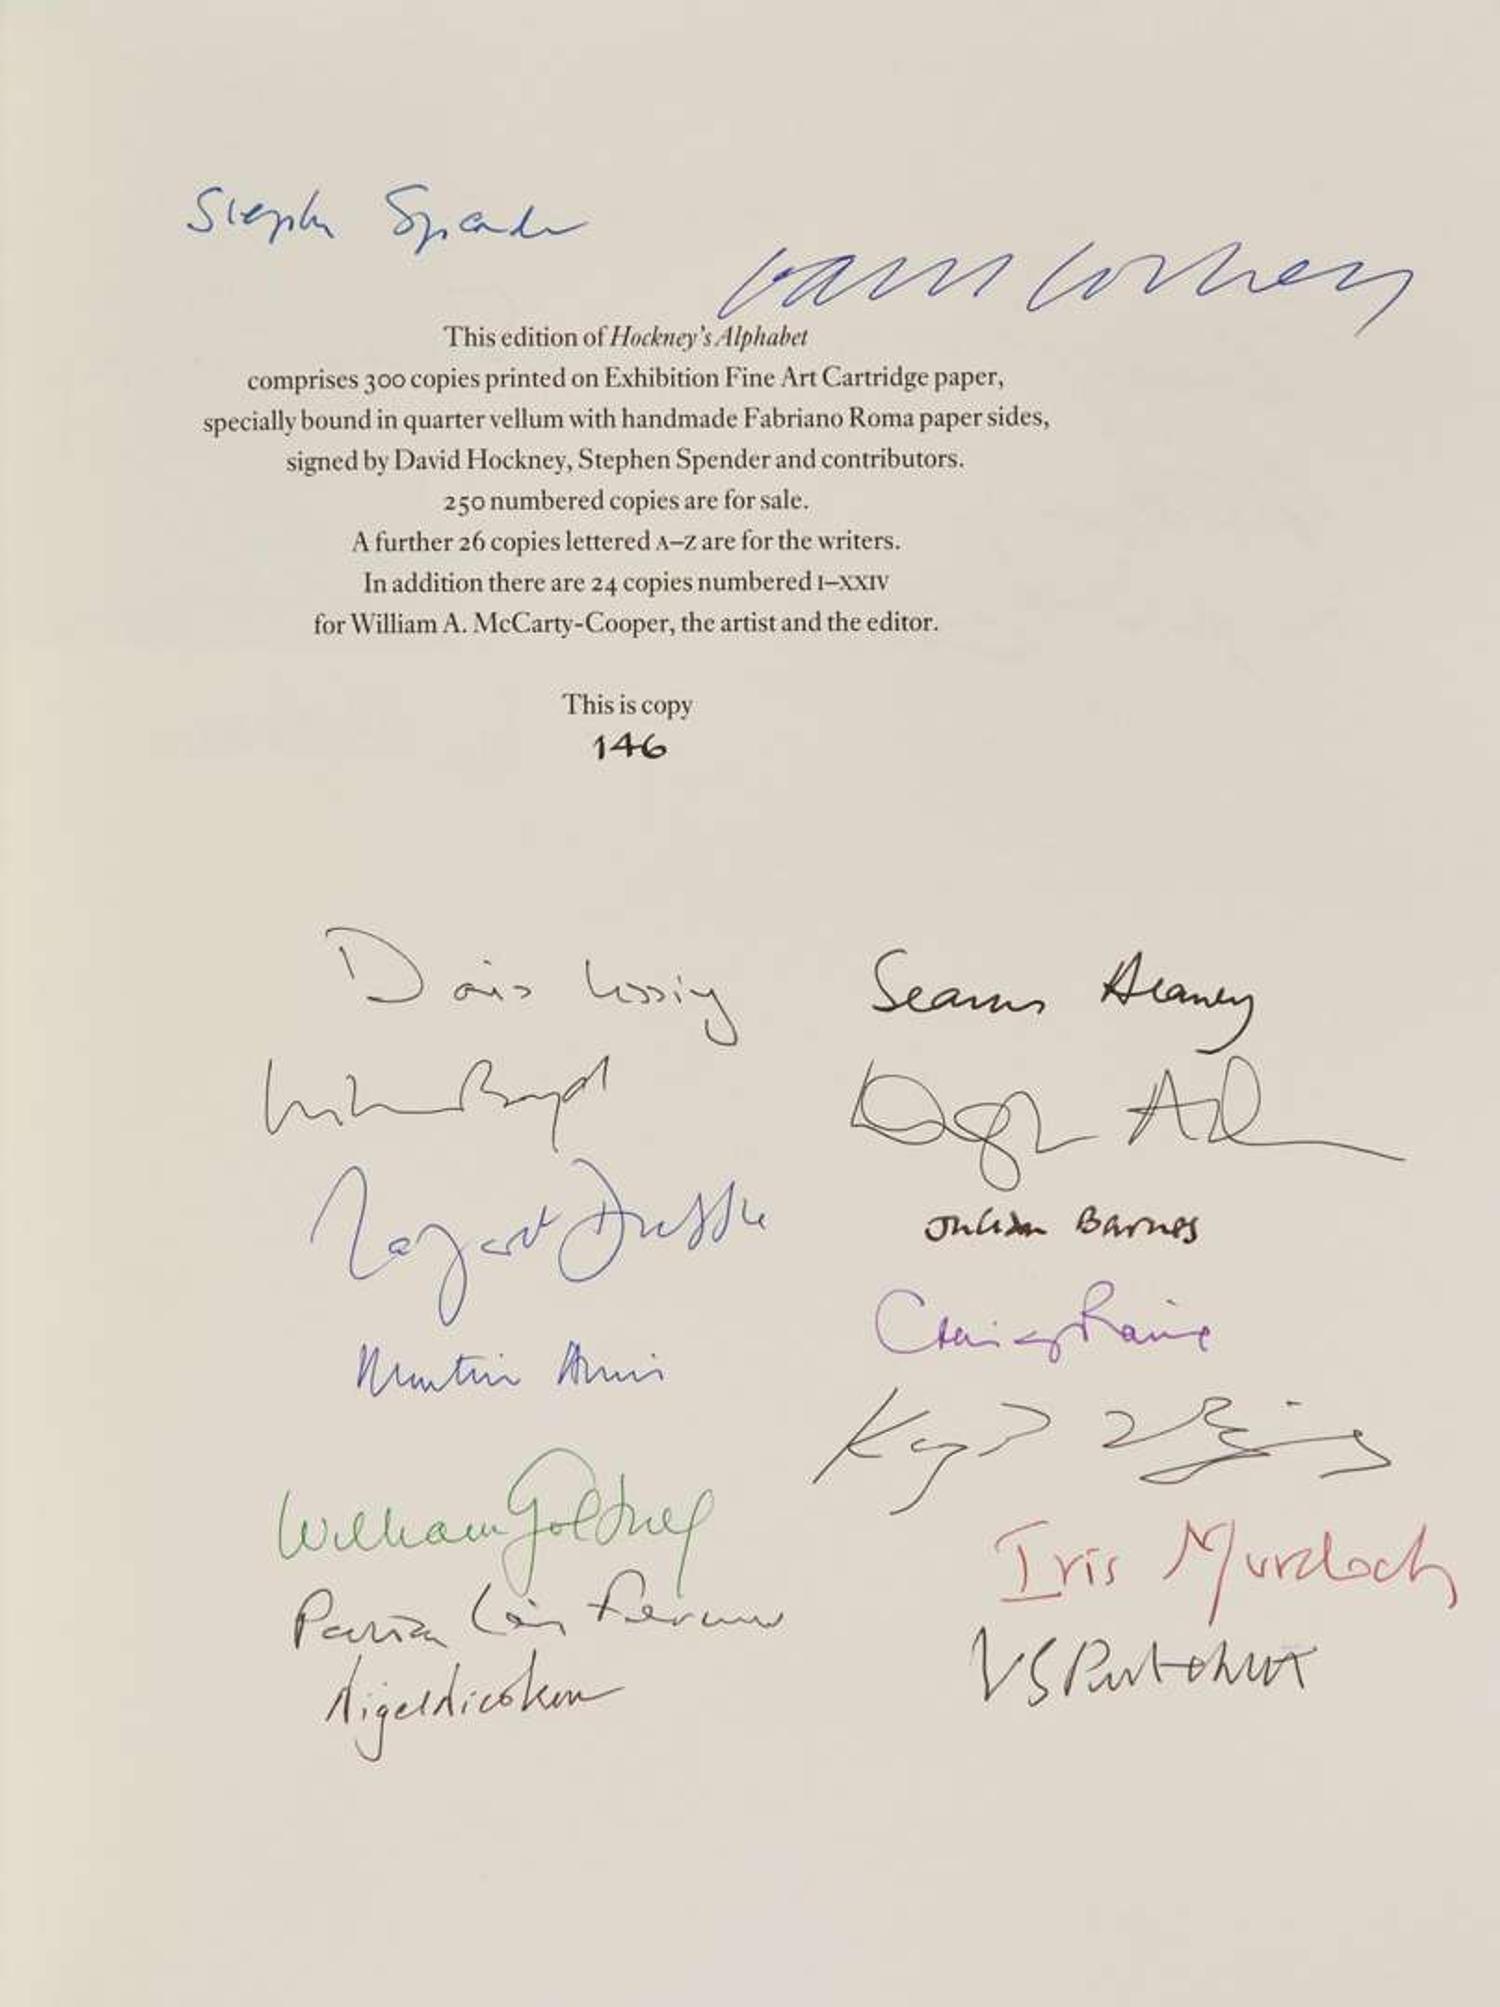 Stephen Spender
David Hockney
This edition of Hockney's Alphabet
comprises 300 copies printed on Exhibition Fine Art Cartridge paper,
specially bound in quarter vellum with handmade Fabriano Roma paper sides,
signed by David Hockney, Stephen Spender and contributors.
250 numbered copies are for sale.
A further 26 copies lettered A–Z are for the writers.
In addition there are 24 copies numbered I–XXIV
for William A. McCarty-Cooper, the artist and the editor.
This is copy
146
Doris Lessing
Seamus Heaney
William Boyd
Douglas Adams
Margaret Drabble
Julian Barnes
Martin Amis
Craig Raine
William Golding
Kazuo Ishiguro
Iris Murdoch
Patrick Leigh Fermor
VS Pritchett
Nigel Nicolson